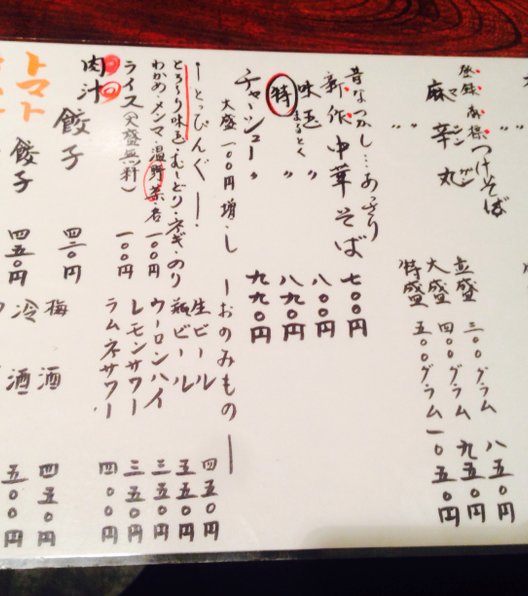 登録商標
つけそば
麻辛丸
〃 〃
並盛 三〇〇グラム 八五〇円
大盛 四〇〇グラム 九五〇円
特盛 五〇〇グラム 一〇五〇円
昔なつかし…あっさり
新作 中華そば 七〇〇円
味玉 〃 八〇〇円
特 まるとく 〃 八九〇円
チャーシュー 〃 九九〇円
大盛 一〇〇円増し
ーとっぴんぐー
とろ〜り味玉・むしどり・ネギ・のり
わかめ・メンマ・温野菜・各 一〇〇円
ライス(大盛無料) 一〇〇円
肉汁餃子 四三〇円
トマト
餃子 四五〇円
ーおのみものー
生ビール 四五〇円
瓶ビール 五五〇円
ウーロンハイ 三五〇円
レモンサワー 三五〇円
ラムネサワー 四〇〇円
梅酒 四五〇円
冷酒 五〇〇円